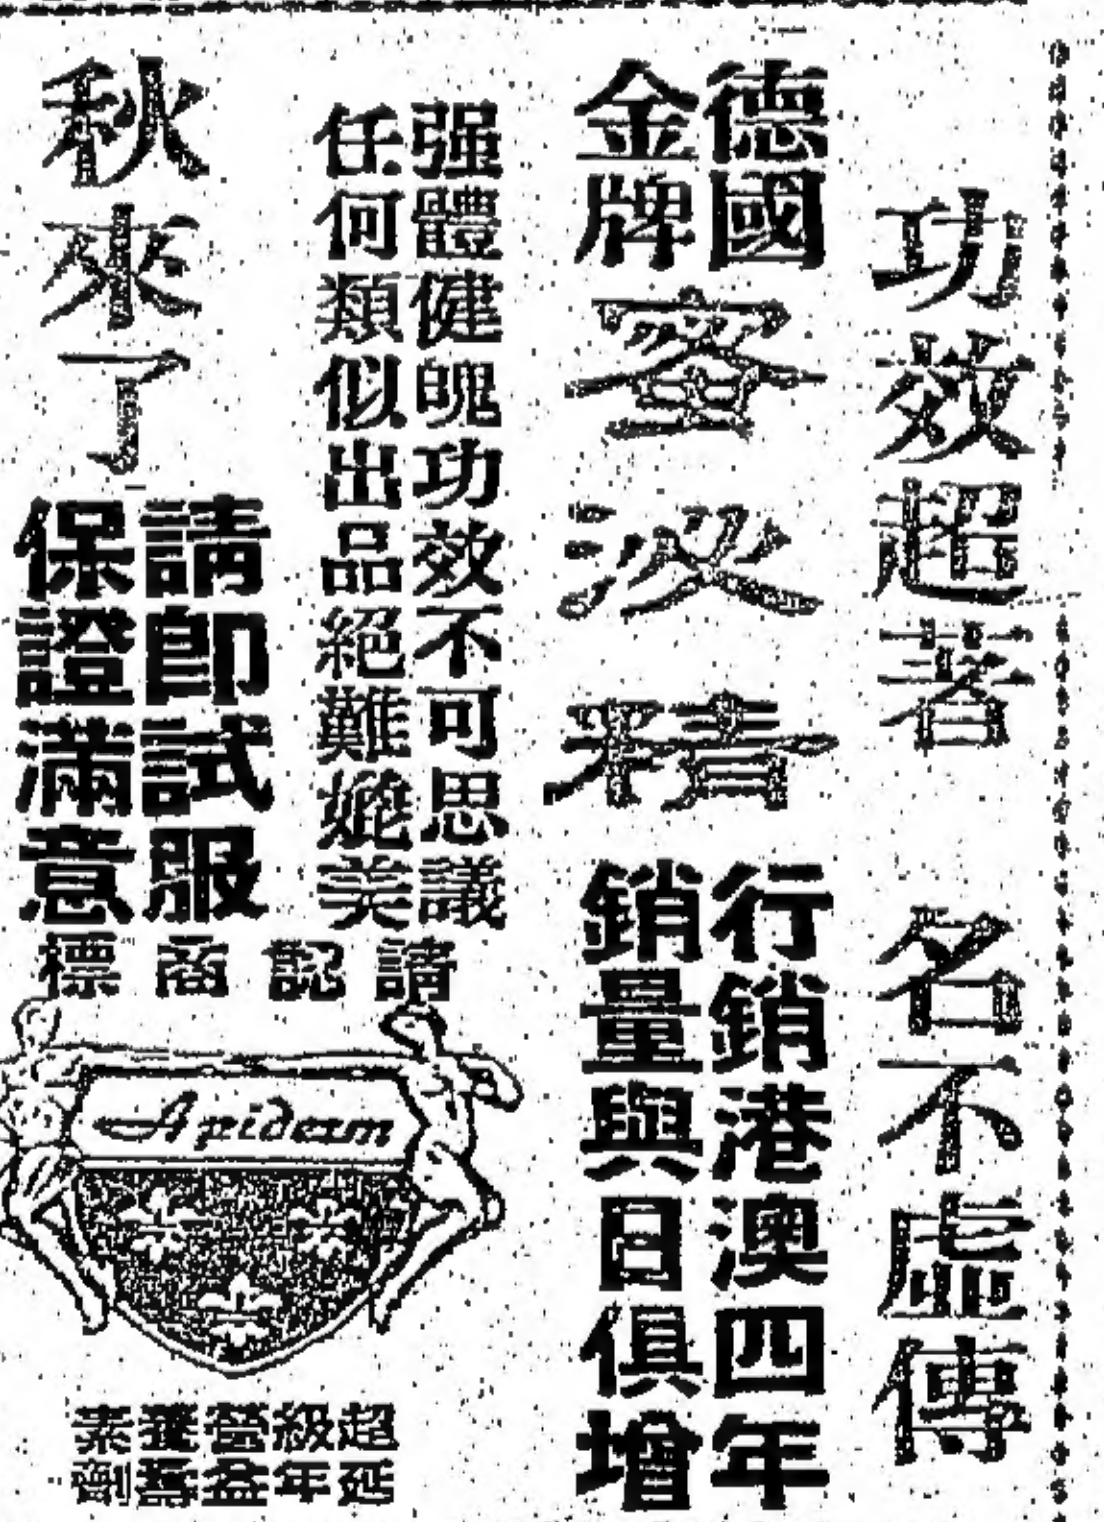 功效超著
名不虛傳
德國
金牌
蜜淡精
行銷港澳四年
銷量與日俱增
强體健魄功效不可思議
任何類似出品絕難媲美
秋來了
請卽試服
保證滿意
請認商標
Apiderm
超級營養素
延年益壽劑